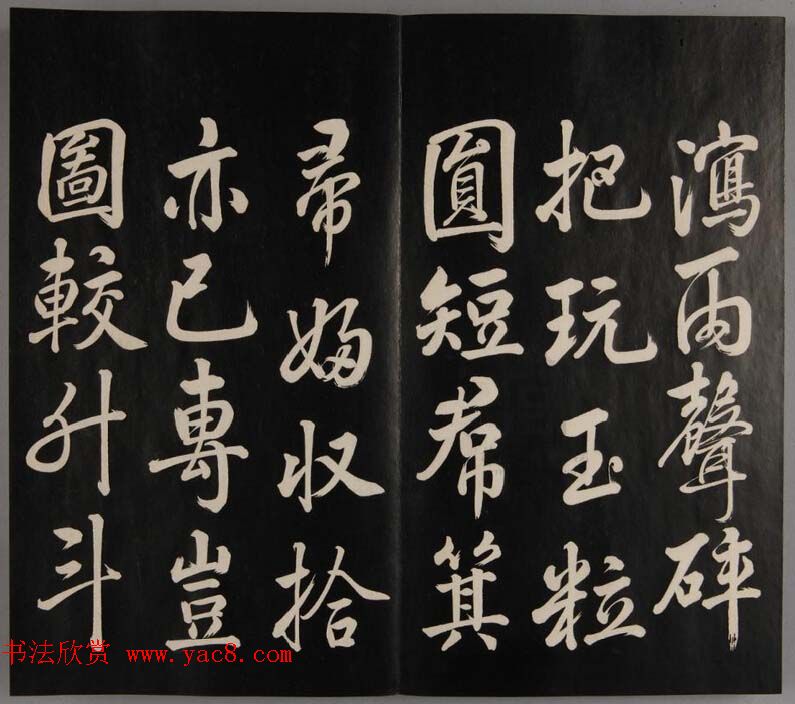 瀉雨聲碎
把玩玉粒
圓短帚箕
帚婦收拾
亦已專豈
圖較升斗
书法欣赏 www.yac8.com